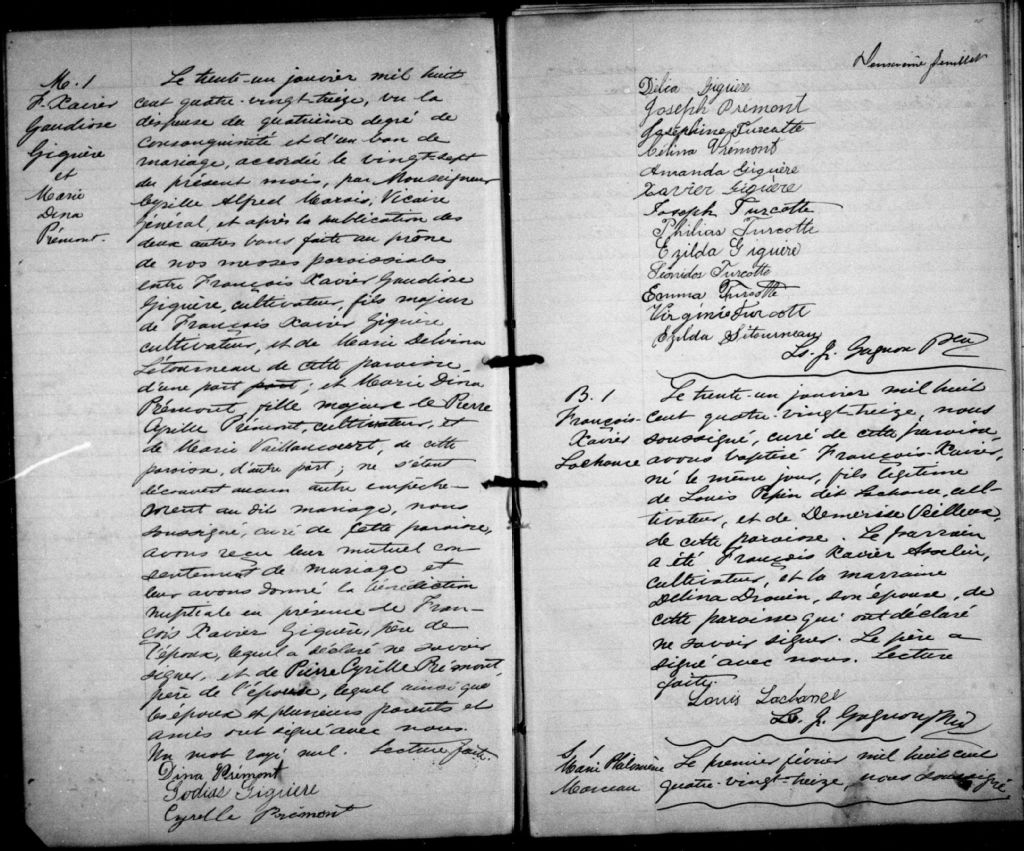 M. 1
F. Xavier
Gaudiose
Giguère
et
Marie
Dina
Prémont.
Le trente-un janvier mil huit
cent quatre-vingt-treize, vu la
dispense du quatrième degré de
consanguinité et d'un ban de
mariage, accordée le vingt-sept
du présent mois, par Monseigneur
Cyrille Alfred Marois, Vicaire
général, et après la publication des
deux autres bans faite au prône
de nos messes paroissiales
entre François Xavier Gaudiose
Giguère, cultivateur, fils majeur
de François Xavier Giguère
cultivateur, et de Marie Delvina
Létourneau de cette paroisse,
d'une part part; et Marie Dina
Prémont, fille majeure de Pierre
Cyrille Prémont, cultivateur, et
de Marie Vaillancourt, de cette
paroisse, d'autre part; ne s'étant
découvert aucun autre empêche-
ment au dit mariage, nous
soussigné, curé de cette paroisse,
avons reçu leur mutuel con
sentement de mariage et
leur avons donné la bénédiction
nuptiale en présence de Fran-
çois Xavier Giguère, père de
l'époux, lequel a déclaré ne savoir
signer, et de Pierre Cyrille Prémont,
père de l'épouse, lequel ainsi que
les époux et plusieurs parents et
amis ont signé avec nous.
Un mot rayé nul. Lecture faite.
Dina Prémont
Godias Giguère
Cyrelle Prémont
feuillet
Délia Giguère
Joseph Prémont
Joséphine Turcotte
Célina Prémont
Amanda Giguère
Xavier Giguère
Joseph Turcotte
Philias Turcotte
Exilda Giguère
Léonidas Turcotte
Emma Turcotte
Virginie Turcott
Exilda Létourneau
Ls. J. Gagnon Ptre
B. 1
François-
Xavier
Lachance
Le trente-un janvier mil huit
cent quatre-vingt-treize, nous
soussigné, curé de cette paroisse,
avons baptisé François-Xavier,
né le même jour, fils légitime
de Louis Pepin dit Lachance, cul-
tivateur, et de Demerise Veilleux,
de cette paroisse. Le parrain
a été François Xavier Asselin,
cultivateur, et la marraine
Délina Drouin, son épouse, de
cette paroisse qui ont déclaré
ne savoir signer. Le père a
signé avec nous. Lecture
faite.
Louis Lachance
Ls. J. Gagnon Ptre
Marie Philomène
Morceau
Le premier février mil huit cent
quatre-vingt-treize, nous soussigné,